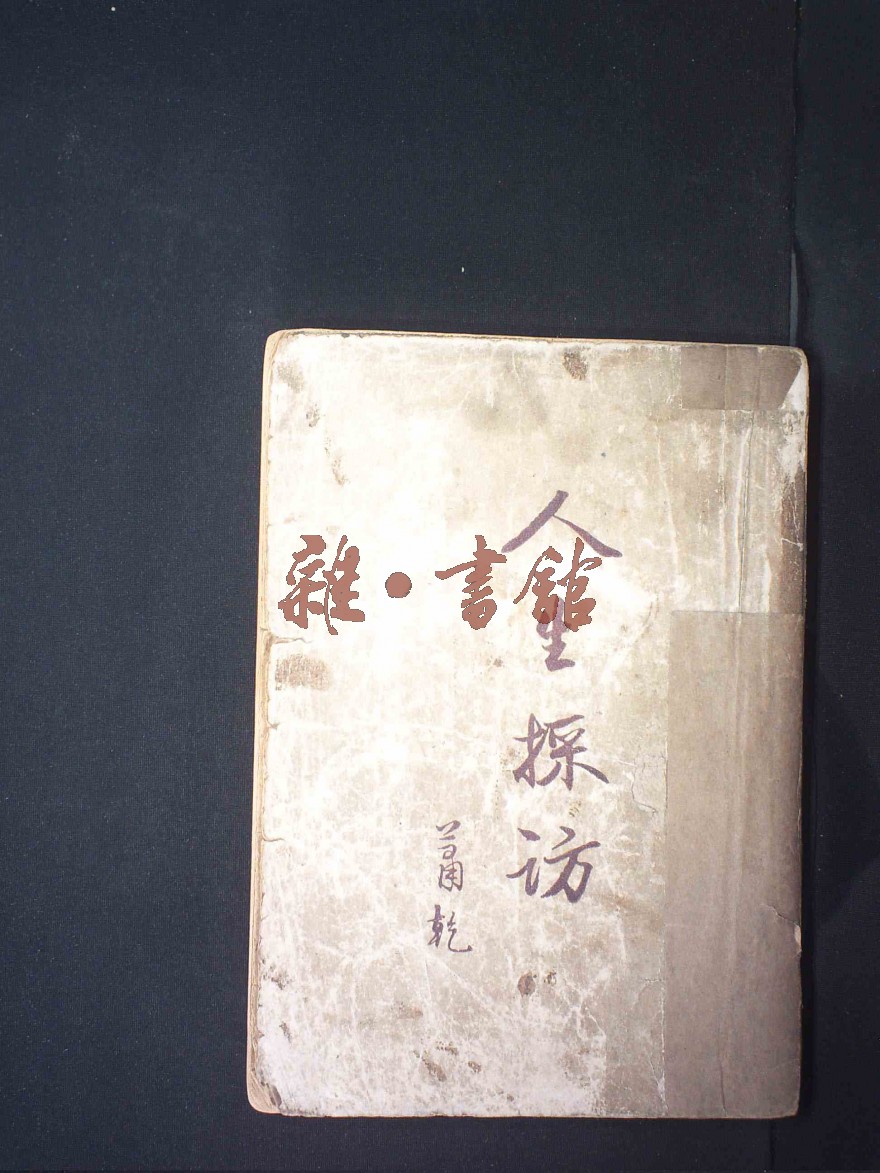 人生採访
蕭乾
雜·書館